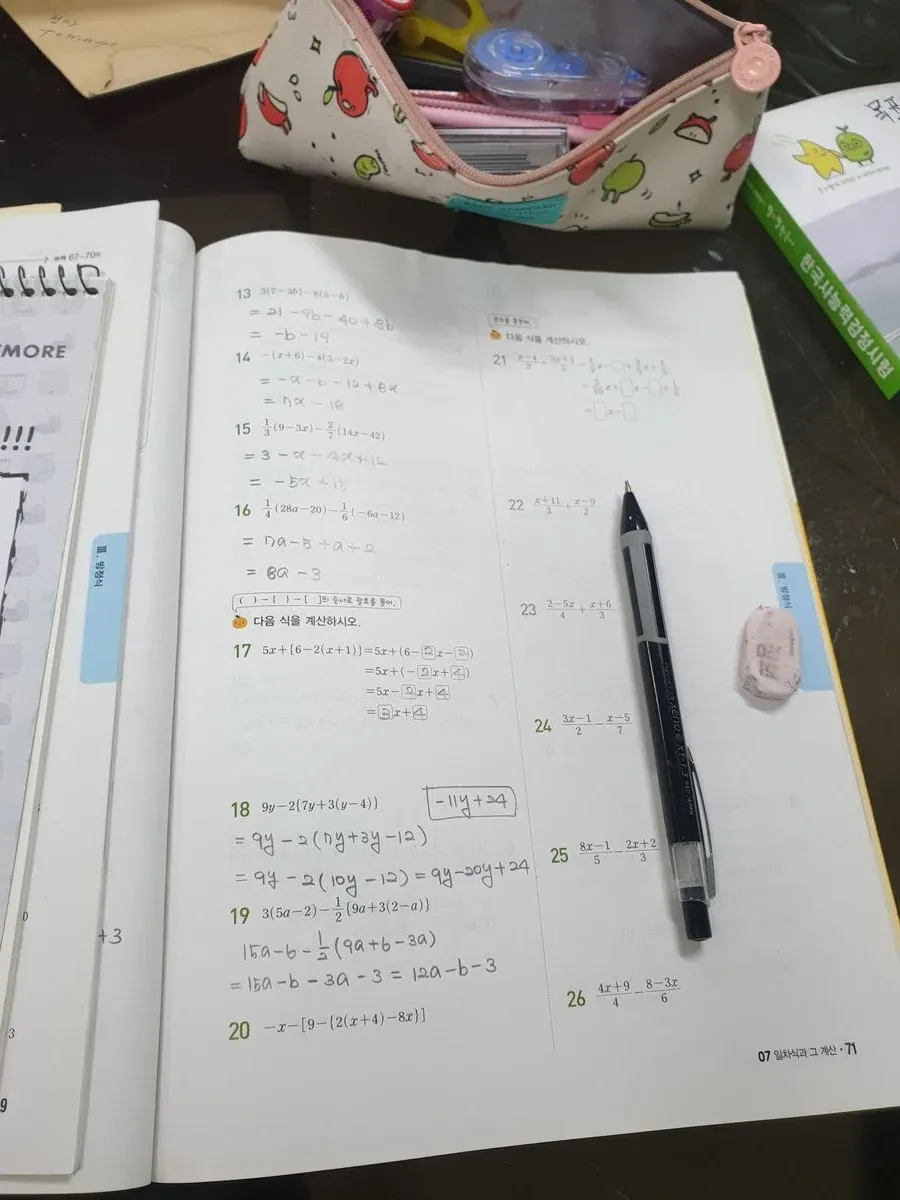 본책 67~70쪽
EMORE
!!!
Ⅲ. 방정식
+3
13 3(7-3b)-8(5-b)
= 21 -9b - 40 + 8b
= -b - 19
14 -(x+6)-4(3-2x)
= -x - 6 - 12 + 8x
= 7x - 18
15 1/3(9-3x)-2/7(14x-42)
= 3 - x - 4x + 12
= -5x + 15
16 1/4(28a-20)-1/6(-6a-12)
= 7a - 5 + a + 2
= 8a - 3
( )→{ }→[ ]의 순서로 괄호를 풀어.
다음 식을 계산하시오.
17 5x+{6-2(x+1)}=5x+(6-2x-2)
=5x+(-2x+4)
=5x-2x+4
=3x+4
18 9y-2{7y+3(y-4)} -11y+24
= 9y - 2(7y+3y-12)
= 9y - 2(10y-12) = 9y-20y+24
19 3(5a-2)-1/2{9a+3(2-a)}
15a-6-1/2(9a+6-3a)
= 15a-6-3a-3 = 12a-6-3
20 -x-[9-{2(x+4)-8x}]
다음 식을 계산하시오.
21
=□x-□
22 (x+11)/3+(x-9)/2
23 (2-5x)/4+(x+6)/3
24 (3x-1)/2-(x-5)/7
25 (8x-1)/5-(2x+2)/3
26 (4x+9)/4-(8-3x)/6
Ⅲ. 방정식
07 일차식과 그 계산 · 71
한국사능력검정시험